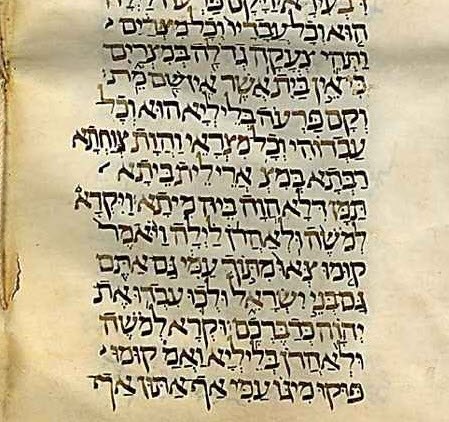 הוא וכל עבדיו וכל מצרים
ותהי צעקה גדלה במצרים
כי אין בית אשר אין שם מת
וקם פרעה בליליא הוא וכל
עבדוהי וכל מצראי והות צוחתא
רבתא במצ ארי לית ביתא
תמן דלא הוה ביה מיתא ויקרא
למשה ולאהרן לילה ויאמר
קומו צאו מתוך עמי גם אתם
גם בני ישראל ולכו עבדו את
יהוה כדברכם וקרא למשה
ולאהרן בליליא ואמ קומו
פוקו מיגו עמי אף אתון אף